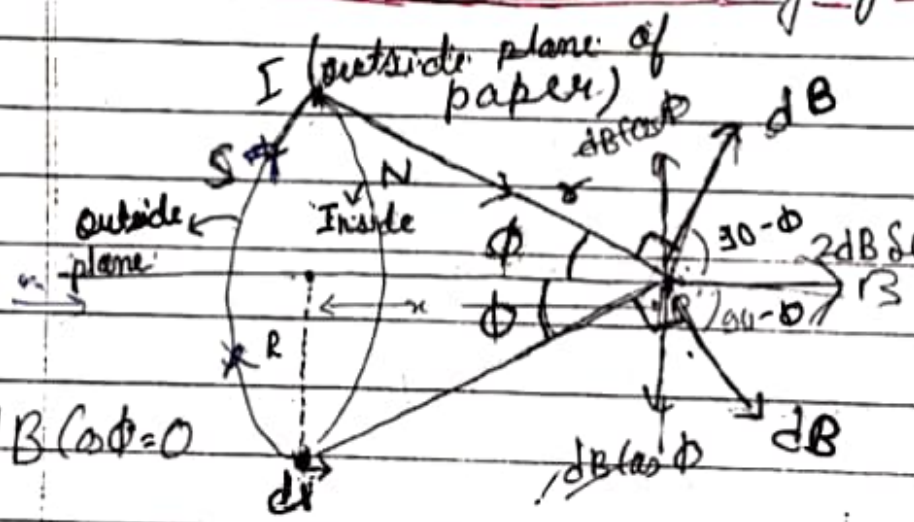 I (outside plane of
paper)
dB
dBcosΦ
S
N
r
outside
plane
Inside
Φ
90-Φ
2dB
B
x
Φ
90-Φ
R
B CosΦ=0
dB
dBcosΦ
dl